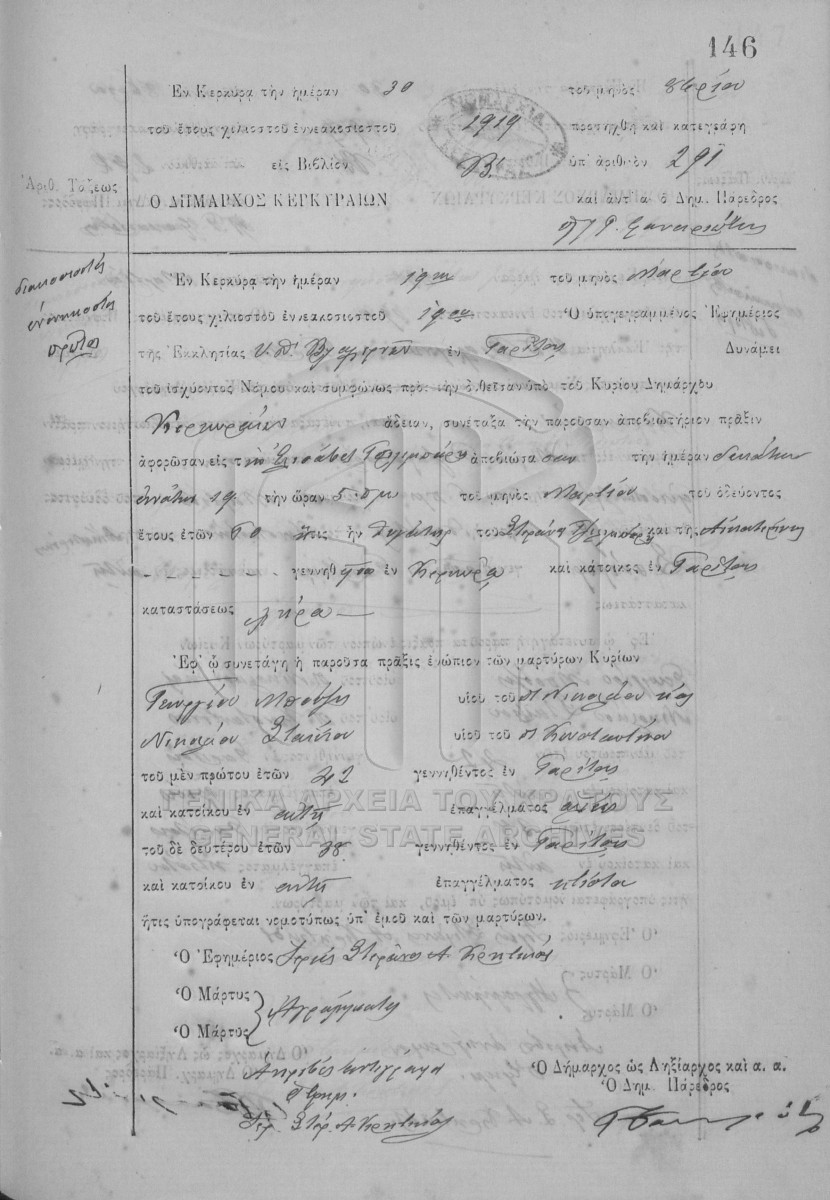 146
Ἐν Κερκύρᾳ τὴν ἡμέραν 30 τοῦ μηνὸς 8βρίου
τοῦ ἔτους χιλιοστοῦ ἐννεακοσιοστοῦ 1919 προσήχθη καὶ κατεγράφη
εἰς Βιβλίον Β' ὑπ' ἀριθμὸν 291
Ἀριθ. Τάξεως
Ο ΔΗΜΑΡΧΟΣ ΚΕΡΚΥΡΑΙΩΝ καὶ ἀντ' α· ὁ Δημ. Πάρεδρος
διακοσιοστός
ἐνενηκοστός
πρῶτος
Ἐν Κερκύρᾳ τὴν ἡμέραν 19ην τοῦ μηνὸς Μαρτίου
τοῦ ἔτους χιλιοστοῦ ἐννεακοσιοστοῦ 19ου Ὁ ὑπογεγραμμένος Ἐφημέριος
τῆς Ἐκκλησίας ἐν Γαρίτσης Δυνάμει
τοῦ ἰσχύοντος Νόμου καὶ συμφώνως πρὸς τὴν δοθεῖσαν ὑπὸ τοῦ Κυρίου Δημάρχου
Κερκυραίων ἄδειαν, συνέταξα τὴν παροῦσαν ἀποβιωτήριον πρᾶξιν
ἀφορῶσαν εἰς τὴν Ἐλισάβετ ἀποβιώσασαν τὴν ἡμέραν δεκάτην
ἐνάτην 19 τὴν ὥραν 5 πμ τοῦ μηνὸς Μαρτίου τοῦ ὁδεύοντος
ἔτους ἐτῶν 60 ἥτις ἦν θυγάτηρ τοῦ Στεφάνου καὶ τῆς Αἰκατερίνης
γεννηθεῖσα ἐν Κερκύρᾳ καὶ κάτοικος ἐν Γαρίτσης
καταστάσεως χήρα
Ἐφ' ᾧ συνετάγη ἡ παροῦσα πρᾶξις ἐνώπιον τῶν μαρτύρων Κυρίων
Γεωργίου Μπούζη υἱοῦ τοῦ π Νικολάου καὶ
Νικολάου υἱοῦ τοῦ π Κωσταντίνου
τοῦ μὲν πρώτου ἐτῶν 42 γεννηθέντος ἐν Γαρίτσης
ΓΕΝΙΚΑ ΑΡΧΕΙΑ ΤΟΥ ΚΡΑΤΟΥΣ
καὶ κατοίκου ἐν αὐτῇ ἐπαγγέλματος
GENERAL STATE ARCHIVES
τοῦ δὲ δευτέρου ἐτῶν 38 γεννηθέντος ἐν Γαρίτσης
καὶ κατοίκου ἐν αὐτῇ ἐπαγγέλματος κτίστου
ἥτις ὑπογράφεται νομοτύπως ὑπ' ἐμοῦ καὶ τῶν μαρτύρων.
Ὁ Ἐφημέριος Ἱερεὺς Στέφανος Α. Κρητικός
Ὁ Μάρτυς
Ἀγράμματοι
Ὁ Μάρτυς
Ἀκριβὲς ἀντίγραφον
Ὁ Δήμαρχος ὡς Ληξίαρχος καὶ α. α.
Ὁ Δημ. Πάρεδρος
Ὁ Ἐφημ.
Ἱερ. Στέφ. Α. Κρητικός